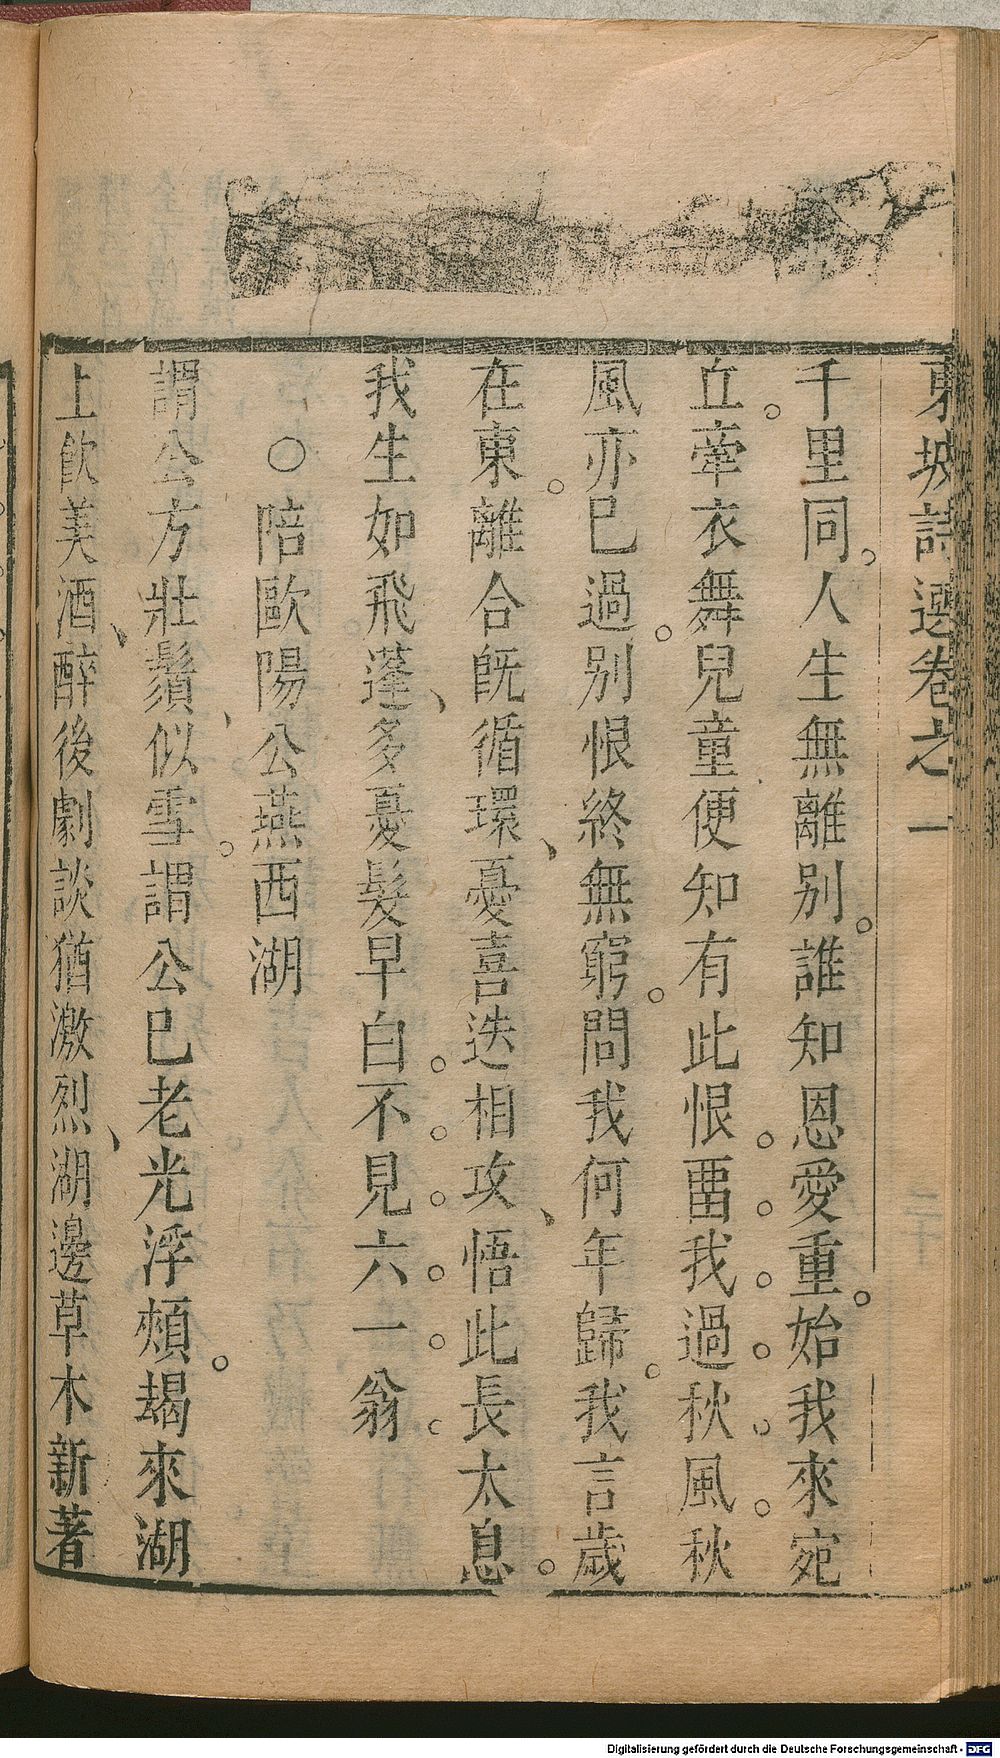 東坡詩選卷之一
千里同。人生無離別。誰知恩愛重。始我來宛
丘。牽衣舞兒童便知有此恨畱我過秋風秋
風亦已過。別恨終無窮。問我何年歸。我言歲
在東。離合旣循環、憂喜迭相攻、悟此長太息。
我生如飛蓬、多憂髮早白不見六一翁
○陪歐陽公燕西湖
謂公方壯鬚似雪。謂公已老光浮頰。朅來湖
上飲美酒、醉後劇談猶激烈、湖邊草木新著
Digitalisierung gefördert durch die Deutsche Forschungsgemeinschaft - DFG